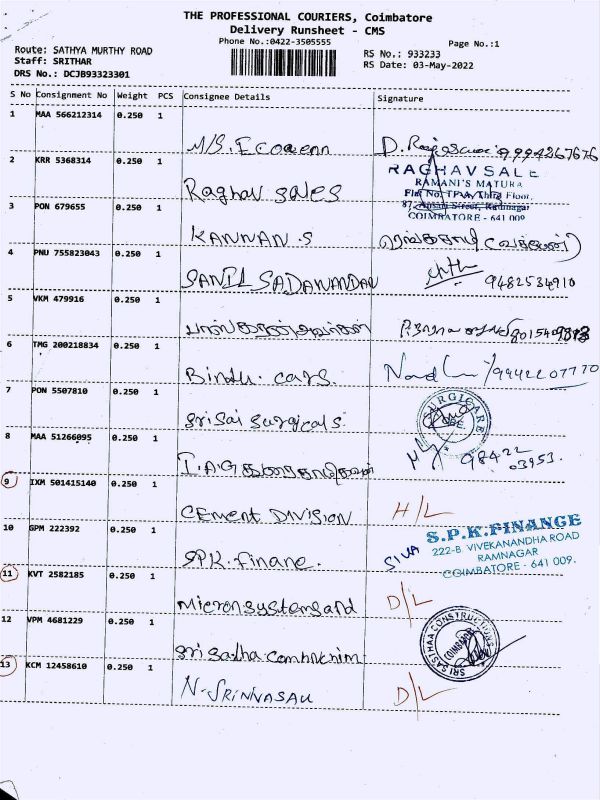 THE PROFESSIONAL COURIERS, Coimbatore
Delivery Runsheet - CMS
Phone No.:0422-3505555
Page No.:1
Route: SATHYA MURTHY ROAD
Staff: SRITHAR
DRS No.: DCJB93323301
RS No.: 933233
RS Date: 03-May-2022
S No Consignment No Weight PCS Consignee Details Signature
1 MAA 566212314 0.250 1
M/S. 9994267676
2 KRR 5368314 0.250 1
Raghav Sales
RAGHAV SALE
RAMANI'S MATURA
Flat No. TP-A, Third Floor,
87, Ansari Street, Ramnagar
COIMBATORE - 641 009
3 PON 679655 0.250 1
KANNAN . S
4 PNU 755823043 0.250 1
SANIL SADANANDAN 9482534910
5 VKM 479916 0.250 1
6 TMG 200218834 0.250 1
Bindu. cars. 99942207770
7 PON 5507810 0.250 1
Sri Sai Surgicals.
SURGICARE
8 MAA 51266095 0.250 1
I.A.G 98422
03953.
9 IXM 501415140 0.250 1
CEMENT DIVISION H/L
10 GPM 222392 0.250 1
SPK. Finane. SIVA
S.P.K.FINANCE
222-B VIVEKANANDHA ROAD
RAMNAGAR
COIMBATORE - 641 009.
11 KVT 2582185 0.250 1
Micronsystems and D/L
12 VPM 4681229 0.250 1
Sri Sastha
SRI SASTHAA CONSTRUCTIONS
COIMBATORE
13 KCM 12458610 0.250 1
N. SRINNASAU D/L